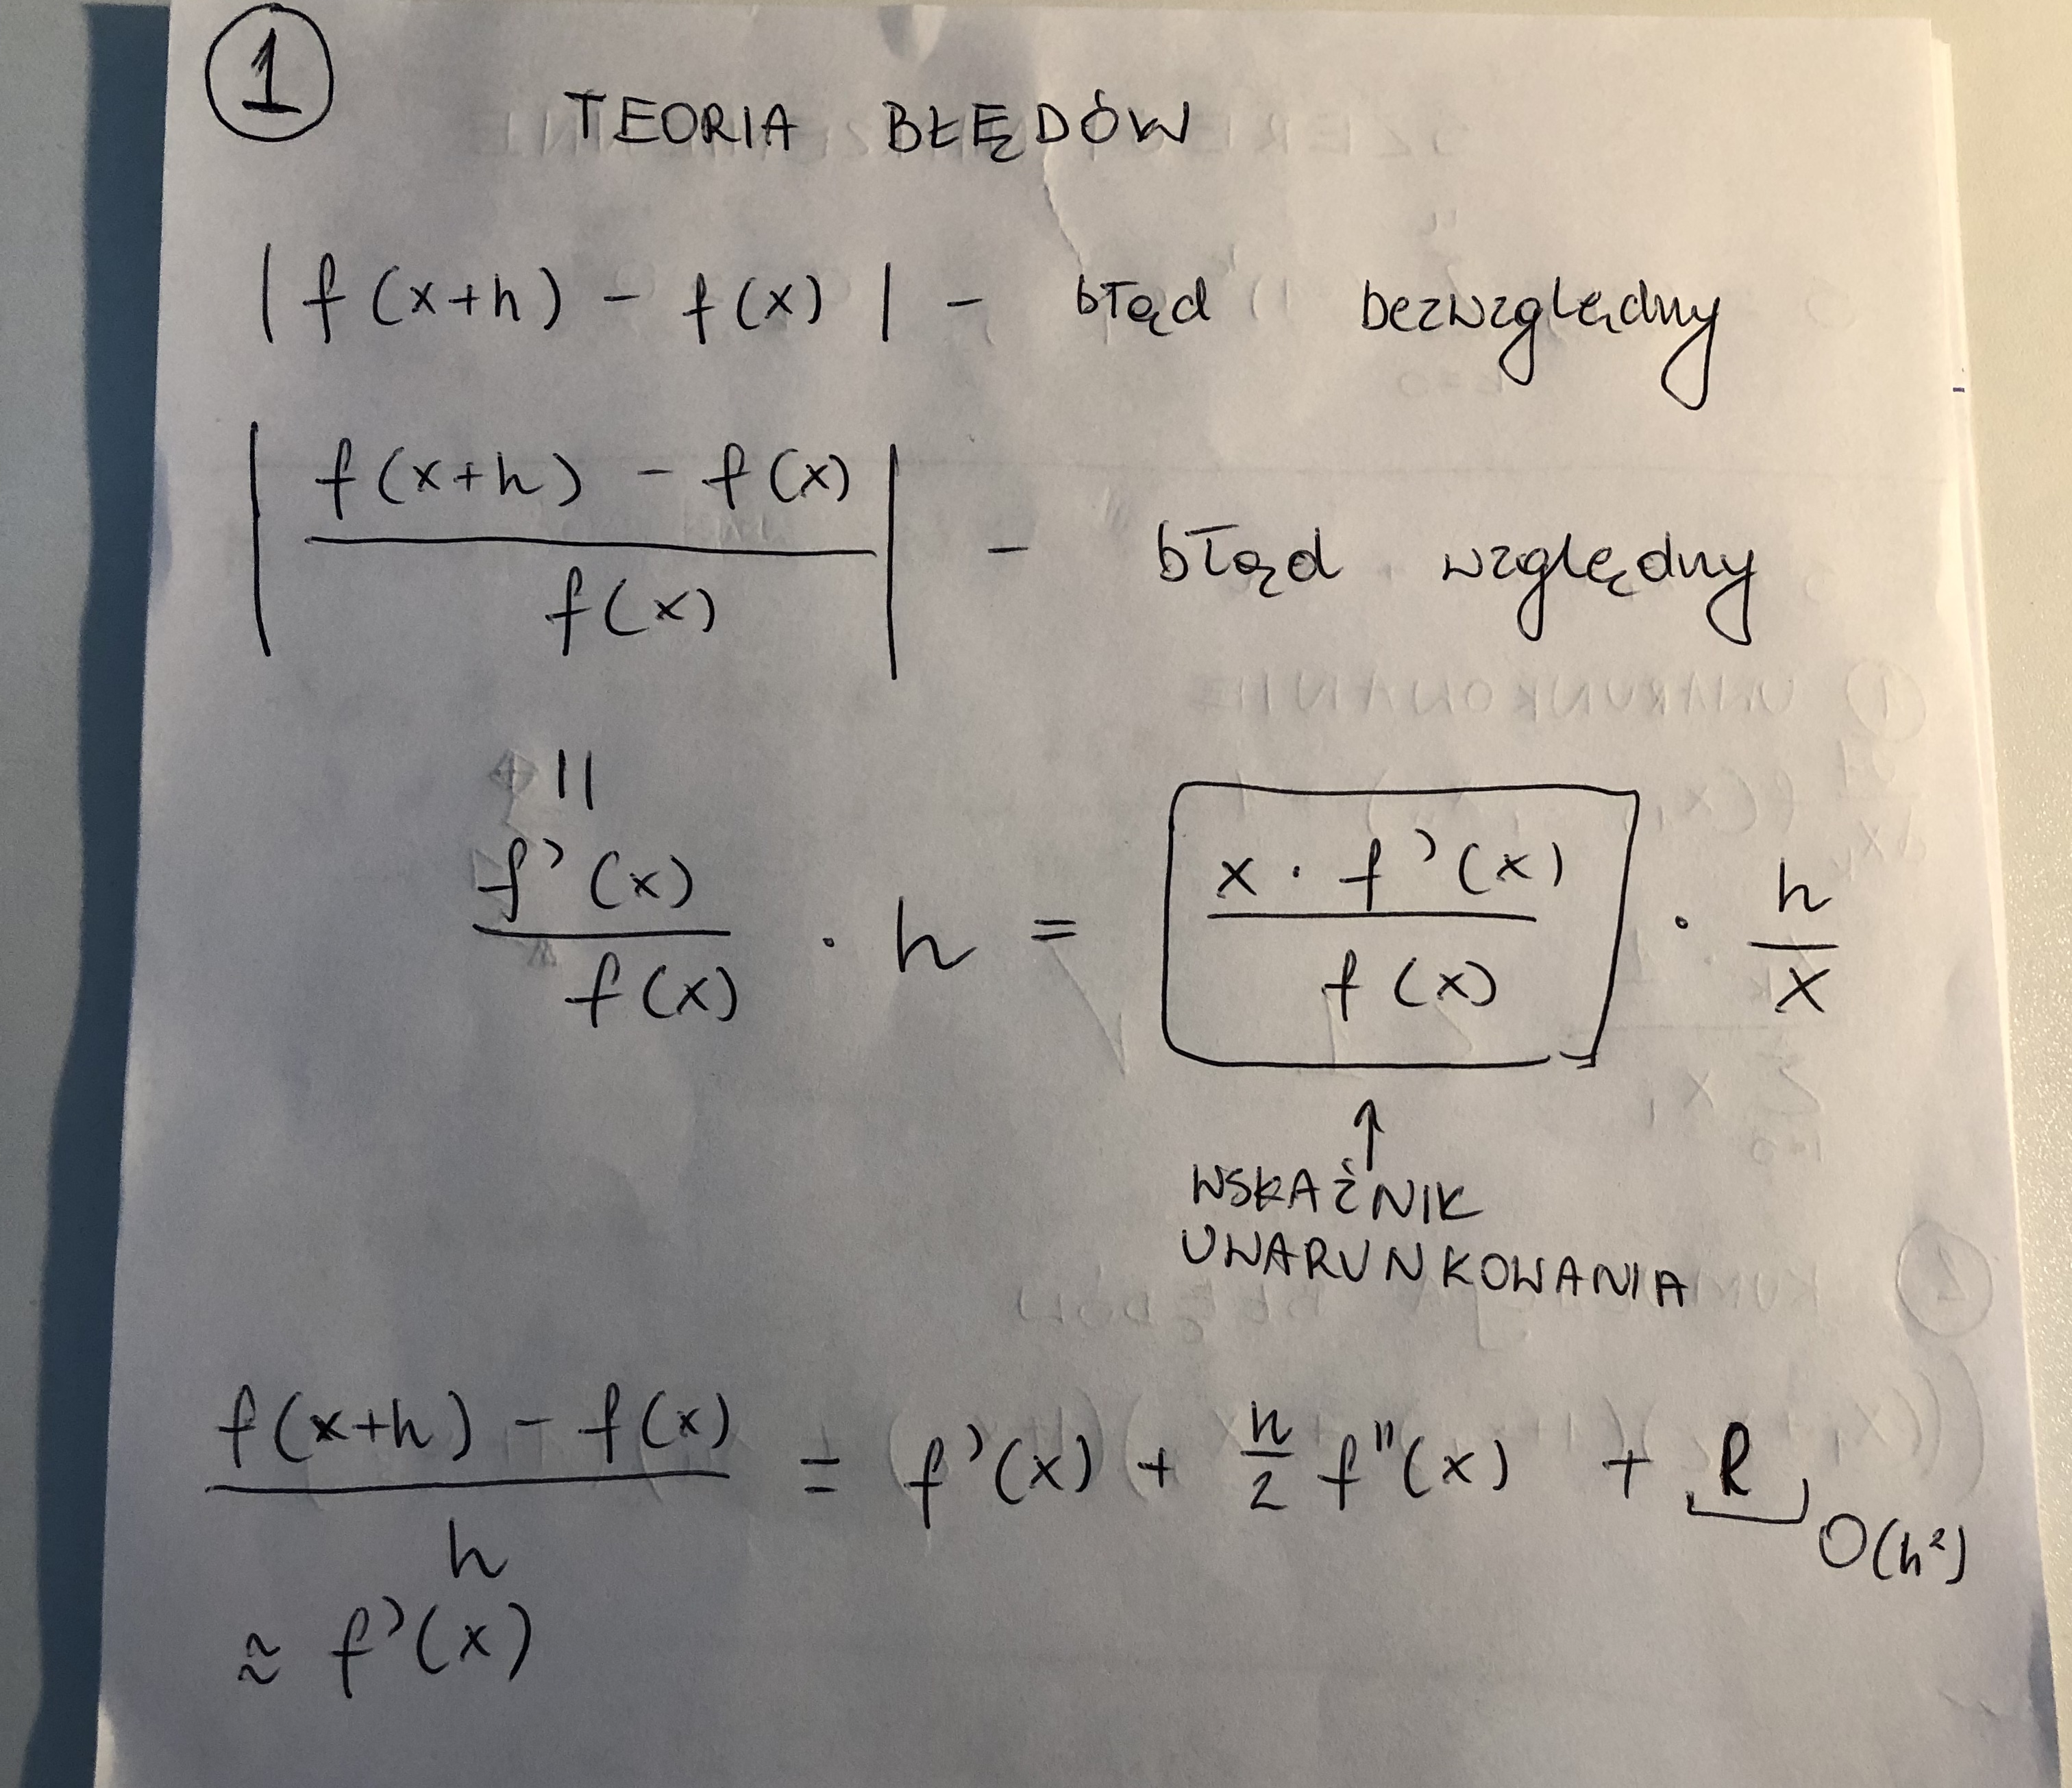 1
TEORIA BŁĘDÓW
| f(x+h) - f(x) | - błąd bezwzględny
| f(x+h) - f(x) / f(x) | - błąd względny
||
f'(x) / f(x) · h = x · f'(x) / f(x) · h / x
↑
WSKAŹNIK
UWARUNKOWANIA
f(x+h) - f(x) / h = f'(x) + h/2 f''(x) + R O(h²)
≈ f'(x)